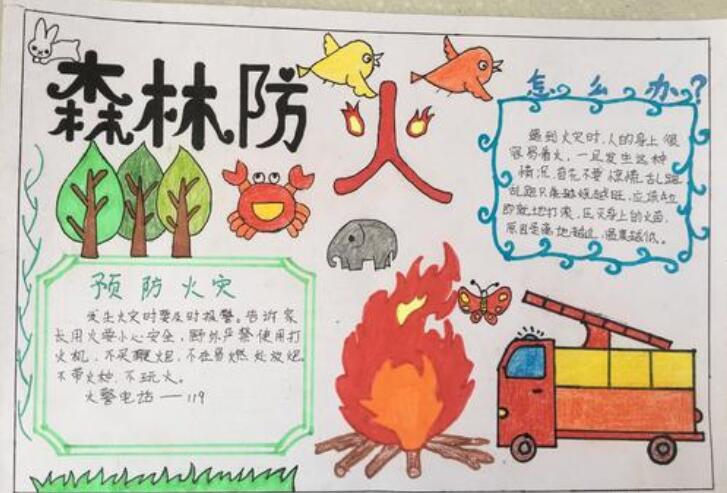 森林防火
怎么办?
遇到火灾时,人的身上很
容易着火,一旦发生这种
情况,首先不要惊慌乱跑
乱跑只会越烧越旺,应该
即就地打滚,压灭身上的火苗,
原因是离地越近,温度越低。
预防火灾
发生火灾时要及时报警。告诉家
长用火要小心安全,野外严禁使用打
火机,不采鞭炮,不在易燃处放炮。
不带火种,不玩火。
火警电话——119